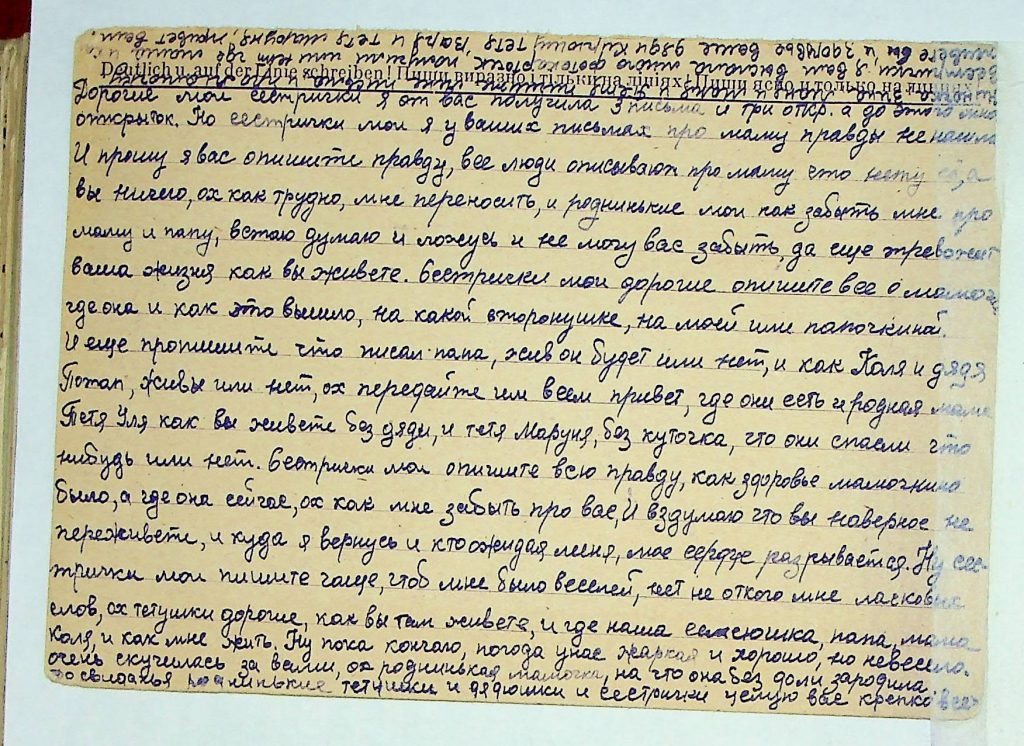 Deutlich u. auf der Linie schreiben! Пиши виразно і тільки на лініях! Пиши ясно и только на линиях!
Дорогие мои сестрички я от вас получила 3 письма и три откр. а до этого
открыток. Но сестрички мои я у ваших письмах про маму правды не нашла
И прошу я вас опишите правду, все люди описывают про маму што нету её, а
вы ничего, ох как трудно, мне переносить, и роднинькие мои как забыть мне про
маму и папу, встаю думаю и ложусь и не могу вас забыть, да еще тревожит
ваша жизня как вы живете. Сестрички мои дорогие опишите все о мамочки
где она и как это вышло, на какой сторонушке, на моей или папочкиной.
И еще пропишите что писал папа, жив он будет или нет, и как Коля и дядя
Потап, живы или нет, ох передайте им всем привет, где они есть и родная мама
Тетя Уля как вы живете без дяди, и тетя Маруня, без куточка, что они спасли что
нибудь или нет. Сестрички мои опишите всю правду, как здоровье мамочкино
было, а где она сейчас, ох как мне забыть про вас, И вздумаю что вы наверное не
переживете, и куда я вернусь и кто ожидая меня, мое сердце разрывается. Ну сес-
трички мои пишите чаще, чтоб мне было веселей, нет не откого мне ласковых
слов, ох тетушки дорогие, как вы там живете, и где наша папа, мама
Коля, и как мне жить. Ну пока кончаю, погода унас жаркая и хорошо, но невесело.
очень скучилась за всеми, ох роднинькая мамочка, на что она без доли зародила
до свиданья роднинькие тетушки и дядюшки и сестрички целую вас крепко всех